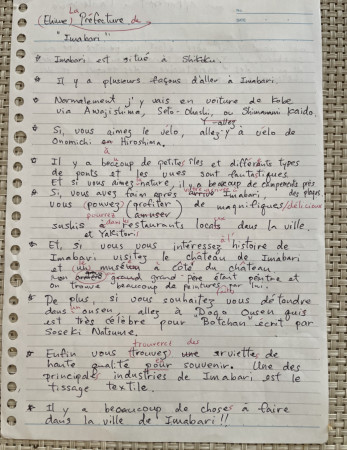 La
(Ehime) Préfecture de
"Imabari"
Imabari est situé à Shikoku.
Il y a plusieurs façons d'aller à Imabari.
Normalement j'y vais en voiture de Kobe
via Awajishima, Seto-Ohashi, ou Shimanami Kaido.
Si, vous aimez le vélo, allez-y à vélo de
Onomichi à Hiroshima.
Il y a beaucoup de petites îles et différents types
de ponts et les vues sont fantastiques.
Et si vous aimez nature, il y a beaucoup de campements près
Si, vous avez faim après Imabari, des plages
vous (pouvez) (profiter) de magnifiques/délicieux
pourrez amuser
sushis à dans restaurants locals dans la ville.
et Yakitori
Et, si vous vous intéressez histoire de
Imabari visitez le château de Imabari
et un muséum à côté du château
mon grand grand père était peintre et
on trouve beaucoup de peintures lui.
De plus, si vous souhaitez vous détendre
dans onsen allez à "Dogo Onsen qui
est très célèbre pour "Botchan écrit par
Soseki Natsume.
trouverez des
Enfin vous trouvez une serviette de
haute qualité pour souvenir. Une des
principales industries de Imabari est le
tissage textile.
Il y a beaucoup de choses à faire
dans la ville de Imabari!!